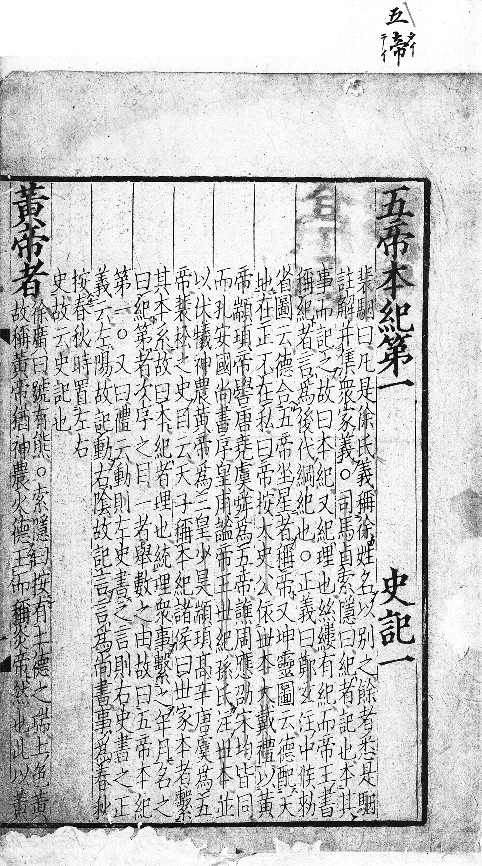 五帝
タイ
テイ
五帝本紀第一 史記一
裴駰曰凡是徐氏義稱徐姓名以別之餘者悉是駰
註解并集衆家義○司馬貞索隱曰紀者記也本其
事而記之故曰本紀又紀理也絲縷有紀而帝王書
稱紀者言為後代綱紀也○正義曰鄭玄注中候勑
省圖云德合五帝坐星者稱帝又坤靈圖云德配天
地在正不在私曰帝按太史公依世本大戴禮以黃
帝顓頊帝嚳唐堯虞舜為五帝譙周應劭宋均皆同
而孔安國尚書序皇甫謐帝王世紀孫氏注世本並
以伏犧神農黃帝為三皇少昊顓頊高辛唐虞為五
帝裴松之史目云天子稱本紀諸侯曰世家本者繫
其本系故曰本紀者理也統理衆事繫之年月名之
曰紀第者次序之目一者舉數之由故曰五帝本紀
第一○又曰禮云動則左史書之言則右史書之正
義云左陽故記動右陰故記言言為尚書事為春秋
按春秋時置左右
史故云史記也
黃帝者
徐廣曰號有熊○索隱曰按有土德之瑞土色黃
故稱黃帝猶神農火德王而稱炎帝然也此以黃